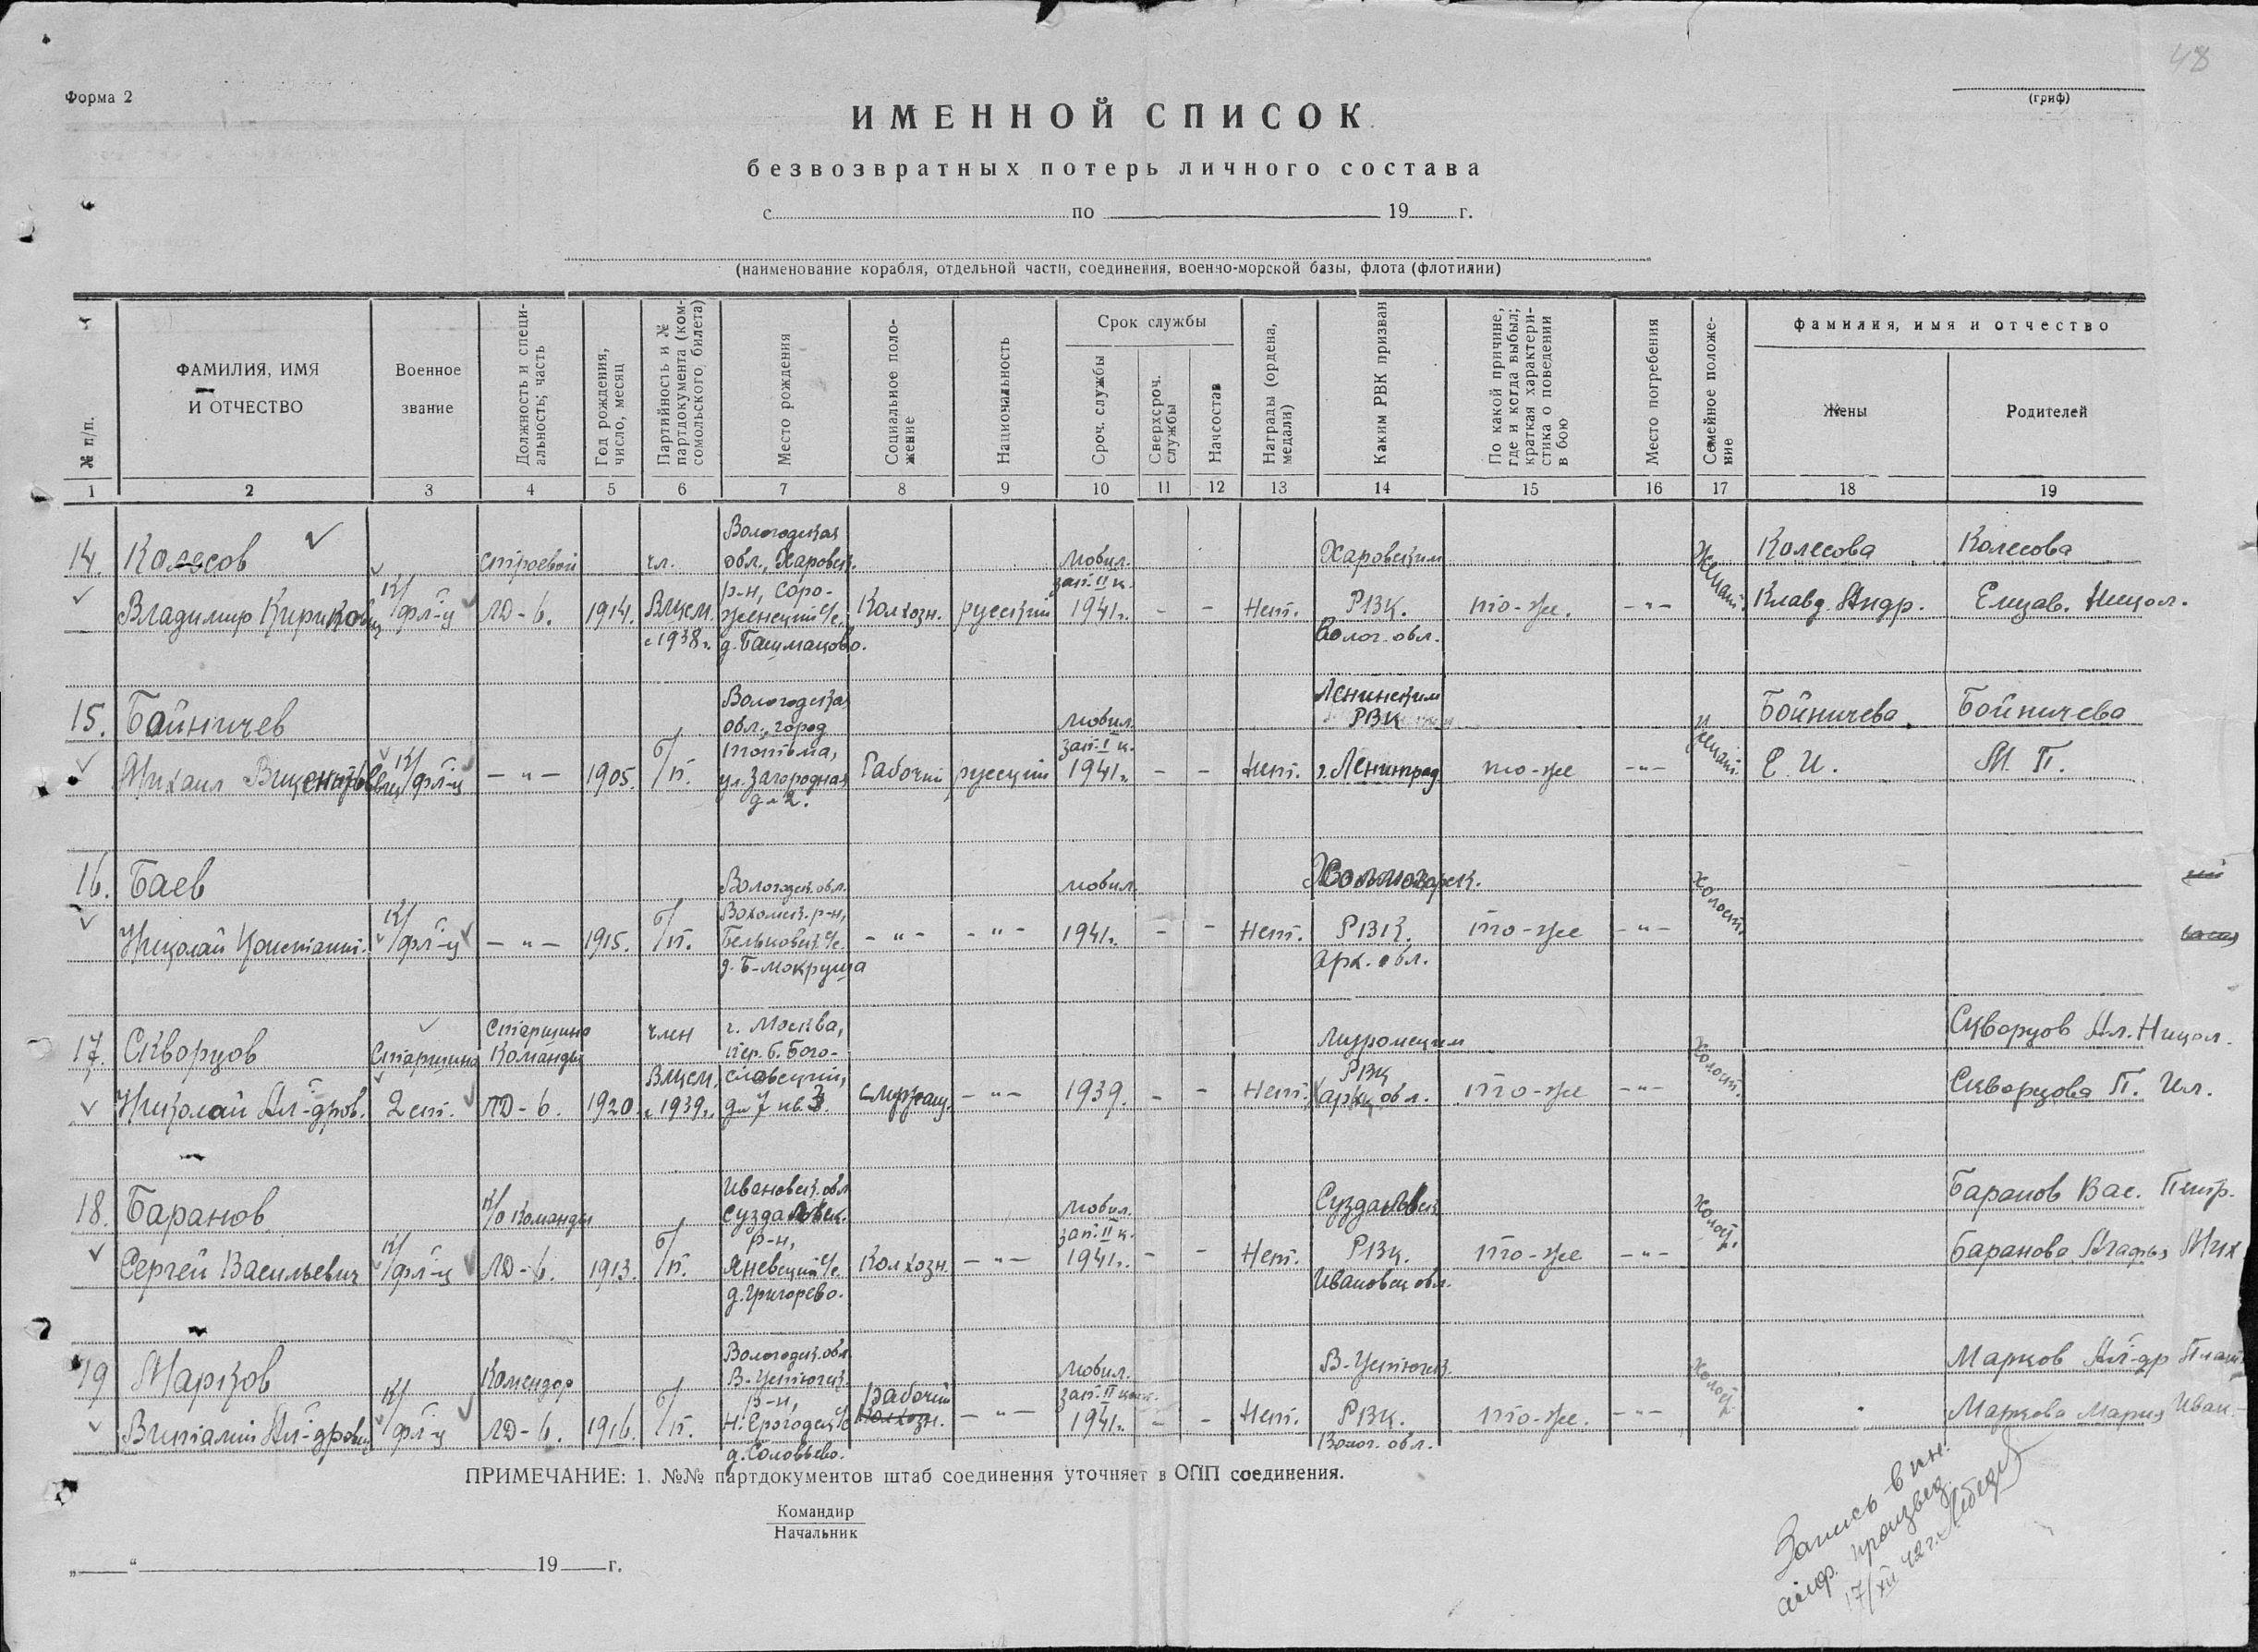 48
Форма 2
(гриф)
ИМЕННОЙ СПИСОК
безвозвратных потерь личного состава
с по 19 г.
(наименование корабля, отдельной части, соединения, военно-морской базы, флота (флотилии)
№ п/п.
ФАМИЛИЯ, ИМЯ
И ОТЧЕСТВО
Военное
звание
Должность и специ-
альность; часть
Год рождения,
число, месяц
Партийность и №
партдокумента (ком-
сомольского билета)
Место рождения
Социальное поло-
жение
Национальность
Срок службы
Сроч. службы
Сверхсроч.
службы
Начсостав
Награды (ордена,
медали)
Каким РВК призван
По какой причине,
где и когда выбыл;
краткая характери-
стика о поведении
в бою
Место погребения
Семейное положе-
ние
фамилия, имя и отчество
Жены
Родителей
1 2 3 4 5 6 7 8 9 10 11 12 13 14 15 16 17 18 19
14.
Колесов
Владимир Кирикович
К/фл-ц
Строевой
ЛД-6.
1914.
чл.
Влксм.
с 1938 г.
Вологодская
обл., Харовск.
р-н, Соро-
женский с/с.
д. Башмаково.
Колхозн.
русский
мобил.
зап. II к.
1941 г.
-
-
Нет.
Харовским
РВК.
Волог. обл.
то-же.
-"-
Женат.
Колесова
Клавд. Андр.
Колесова
Елизав. Никол.
15.
Бойничев
Михаил Викентьевич
К/фл-ц
-"-
1905.
б/п.
Вологодская
обл., город
Тотьма,
ул. Загородная
д. 2.
Рабочий
русский
мобил.
зап. I к.
1941 г.
-
-
Нет.
Ленинским
РВК
г. Ленинград
то-же
-"-
женат.
Бойничева
Е. И.
Бойничева
М. П.
16.
Баев
Николай Констант.
К/фл-ц
-"-
1915.
б/п.
Вологодск. обл.
Вохомск. р-н,
Бельковск. с/с.
д. Б-Мокруша
-"-
-"-
мобил.
1941 г.
-
-
Нет.
РВК.
Арх. обл.
то-же
-"-
холост.
17.
Скворцов
Николай Ал-дров.
Старшина
2 ст.
Старшина
Команды
ЛД-6.
1920
член
Влксм.
с 1939 г.
г. Москва,
пер. б. Бого-
словский,
д. 7 кв. 3.
Служащ.
-"-
1939.
-
-
Нет.
РВК
то-же
-"-
холост.
Скворцов Ал. Никол.
Скворцова П. Ил.
18.
Баранов
Сергей Васильевич
К/фл-ц
К/о Команды
ЛД-6.
1913.
б/п.
Ивановск. обл
Суздальск.
р-н,
Яневский с/с.
д. Григорево.
Колхозн.
-"-
мобил.
зап. II к.
1941 г.
-
-
Нет.
Суздальск
РВК.
Ивановск обл.
то-же
-"-
холост.
Баранов Вас. Петр.
Баранова Агафья Мих
19
Марков
Виталий Ал-дрович
К/фл-ц
Комендор
ЛД-6.
1916.
б/п.
Вологодск. обл
В-Устюгск.
р-н,
Н. Ерогодск. с/с
д. Соловьево.
Рабочий
Колхозн.
-"-
мобил.
зап. II кат.
1941 г.
-
-
Нет.
В-Устюгск.
РВК.
Волог. обл.
то-же.
-"-
холост.
Марков Ал-др Плат
Маркова Мария Иван.
ПРИМЕЧАНИЕ: 1. №№ партдокументов штаб соединения уточняет в ОПП соединения.
Командир
Начальник
„ “ 19 г.
Запись в кн.
алф. произвед
17/XII 42 г.